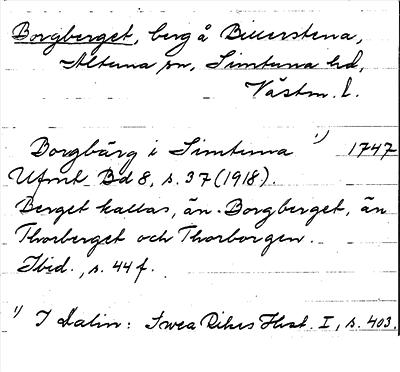 Borgberget, berg å Billerstena,
Altuna sn, Simtuna hd,
Västm. l.
Borgbärg i Simtuna ¹) 1747
Ufmt Bd 8, s. 37 (1918).
Berget kallas, än Borgberget, än
Thorberget och Thorborgen.
Ibid., s. 44 f.
¹) I Dalin: Swea Rikes Hist. I, s. 403.